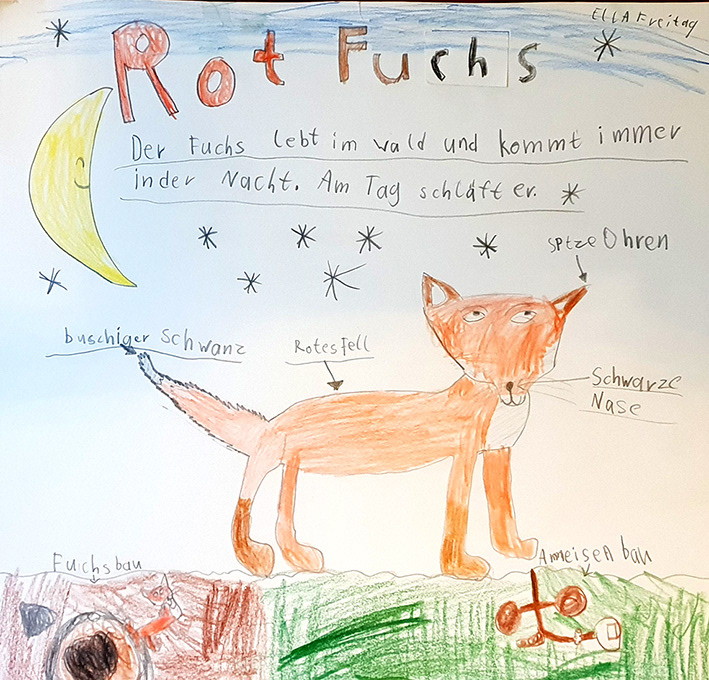 ELLA Freitag
Rot Fuchs
Der Fuchs lebt im wald und kommt immer
in der Nacht. Am Tag schläft er.
sptze Ohren
buschiger Schwanz
Rotes fell
Schwarze
Nase
Fuchsbau
Ameisen bau